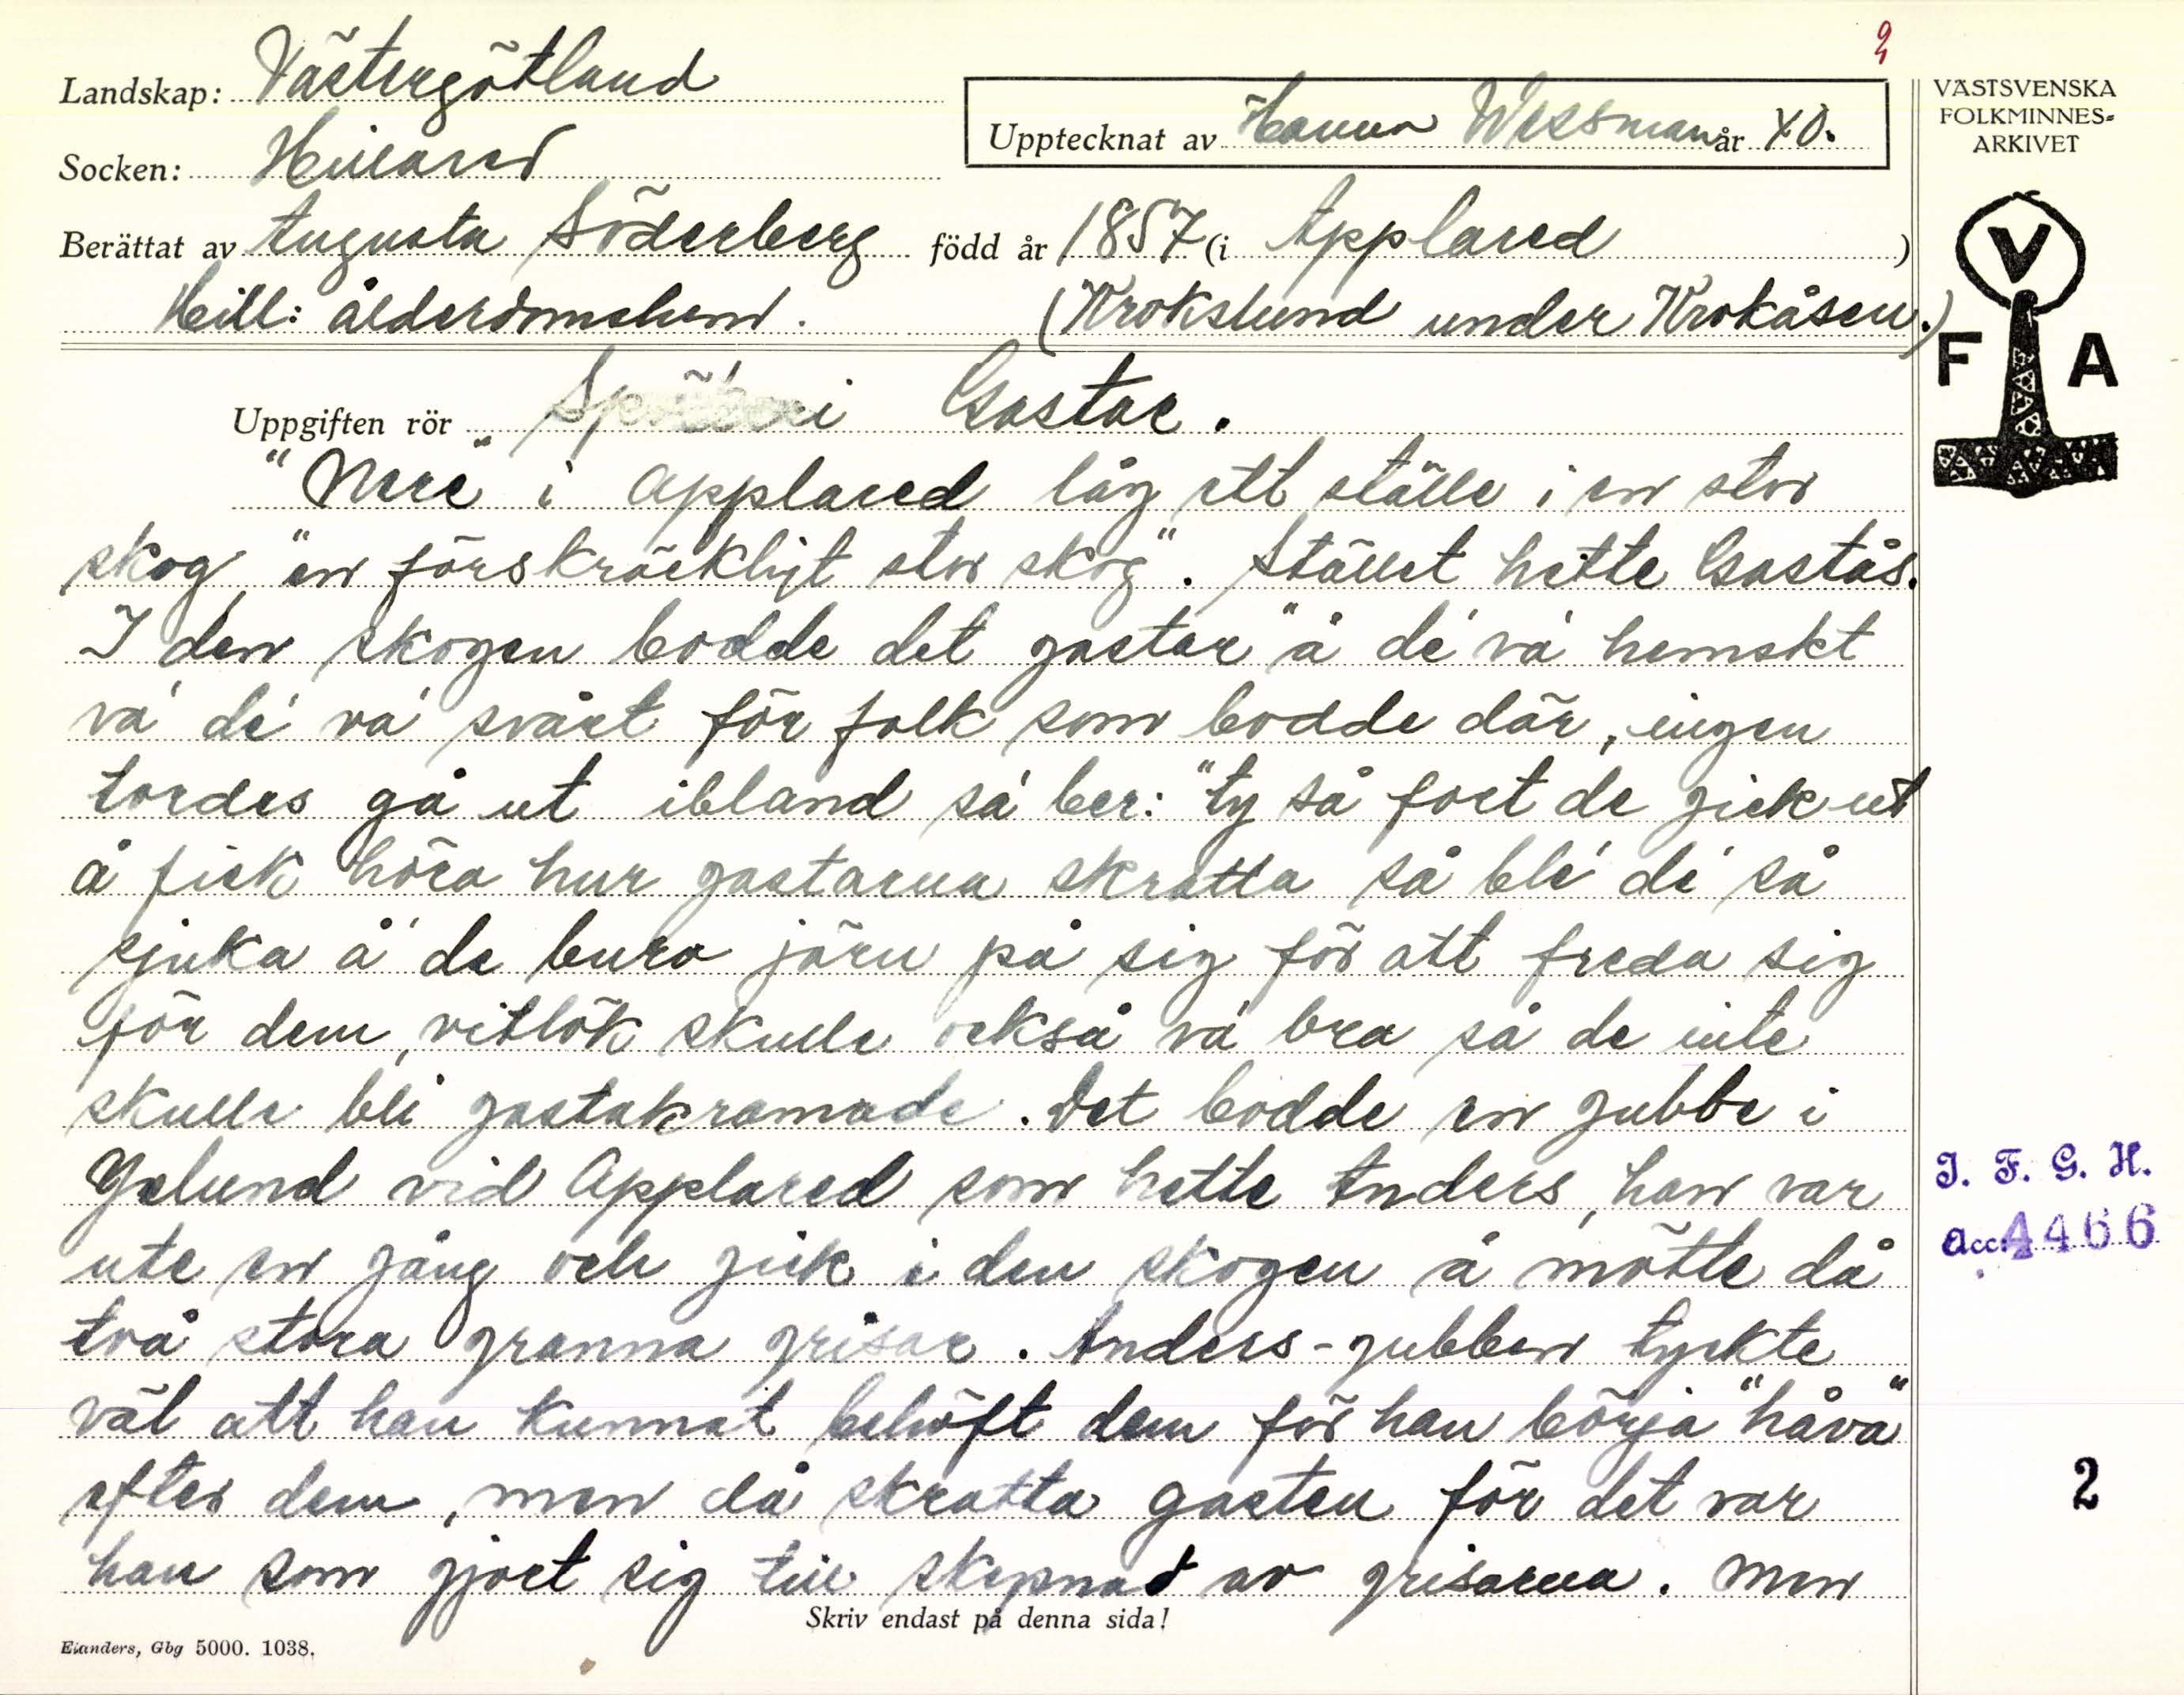 2
Landskap: Västergötland
Upptecknat av Hanna Wessman år 40.
Socken: Hillared
Berättat av Augusta Söderberg född år 1857 (i Applared)
Hill: ålderdomshem. (Krokslund under Krokåsen.)
Uppgiften rör i Gastar.
"Nere" i Applared låg ett ställe i en stor
skog, "en förskräckligt stor skog". Stället hette Gastås.
I den skogen bodde det gastar "å de' va' hemskt
va' de' va' svårt för folk som bodde där, ingen
tordes gå ut ibland så ber: "ty så fort de gick ut
å fick höra hur gastarna skratta så ble' di' så
sjuka å' de buro järn på sig för att freda sig
för dem, vitlök skulle också va' bra så de inte
skulle bli gastakramade. Det bodde en gubbe i
Yslund vid Applared som hette Anders, han var
ute en gång och gick i den skogen å mötte då
två stora granna grisar. Anders-gubben tyckte
väl att han kunnat behöft dem för han börja "håva"
efter dem, men då skratta gasten för det var
han som gjort sig till skepnad av grisarna. Men
Skriv endast på denna sida!
Elanders, Gbg 5000. 1038.
VÄSTSVENSKA
FOLKMINNES-
ARKIVET
V
F A
I. F. G. H.
Acc. 4466
2